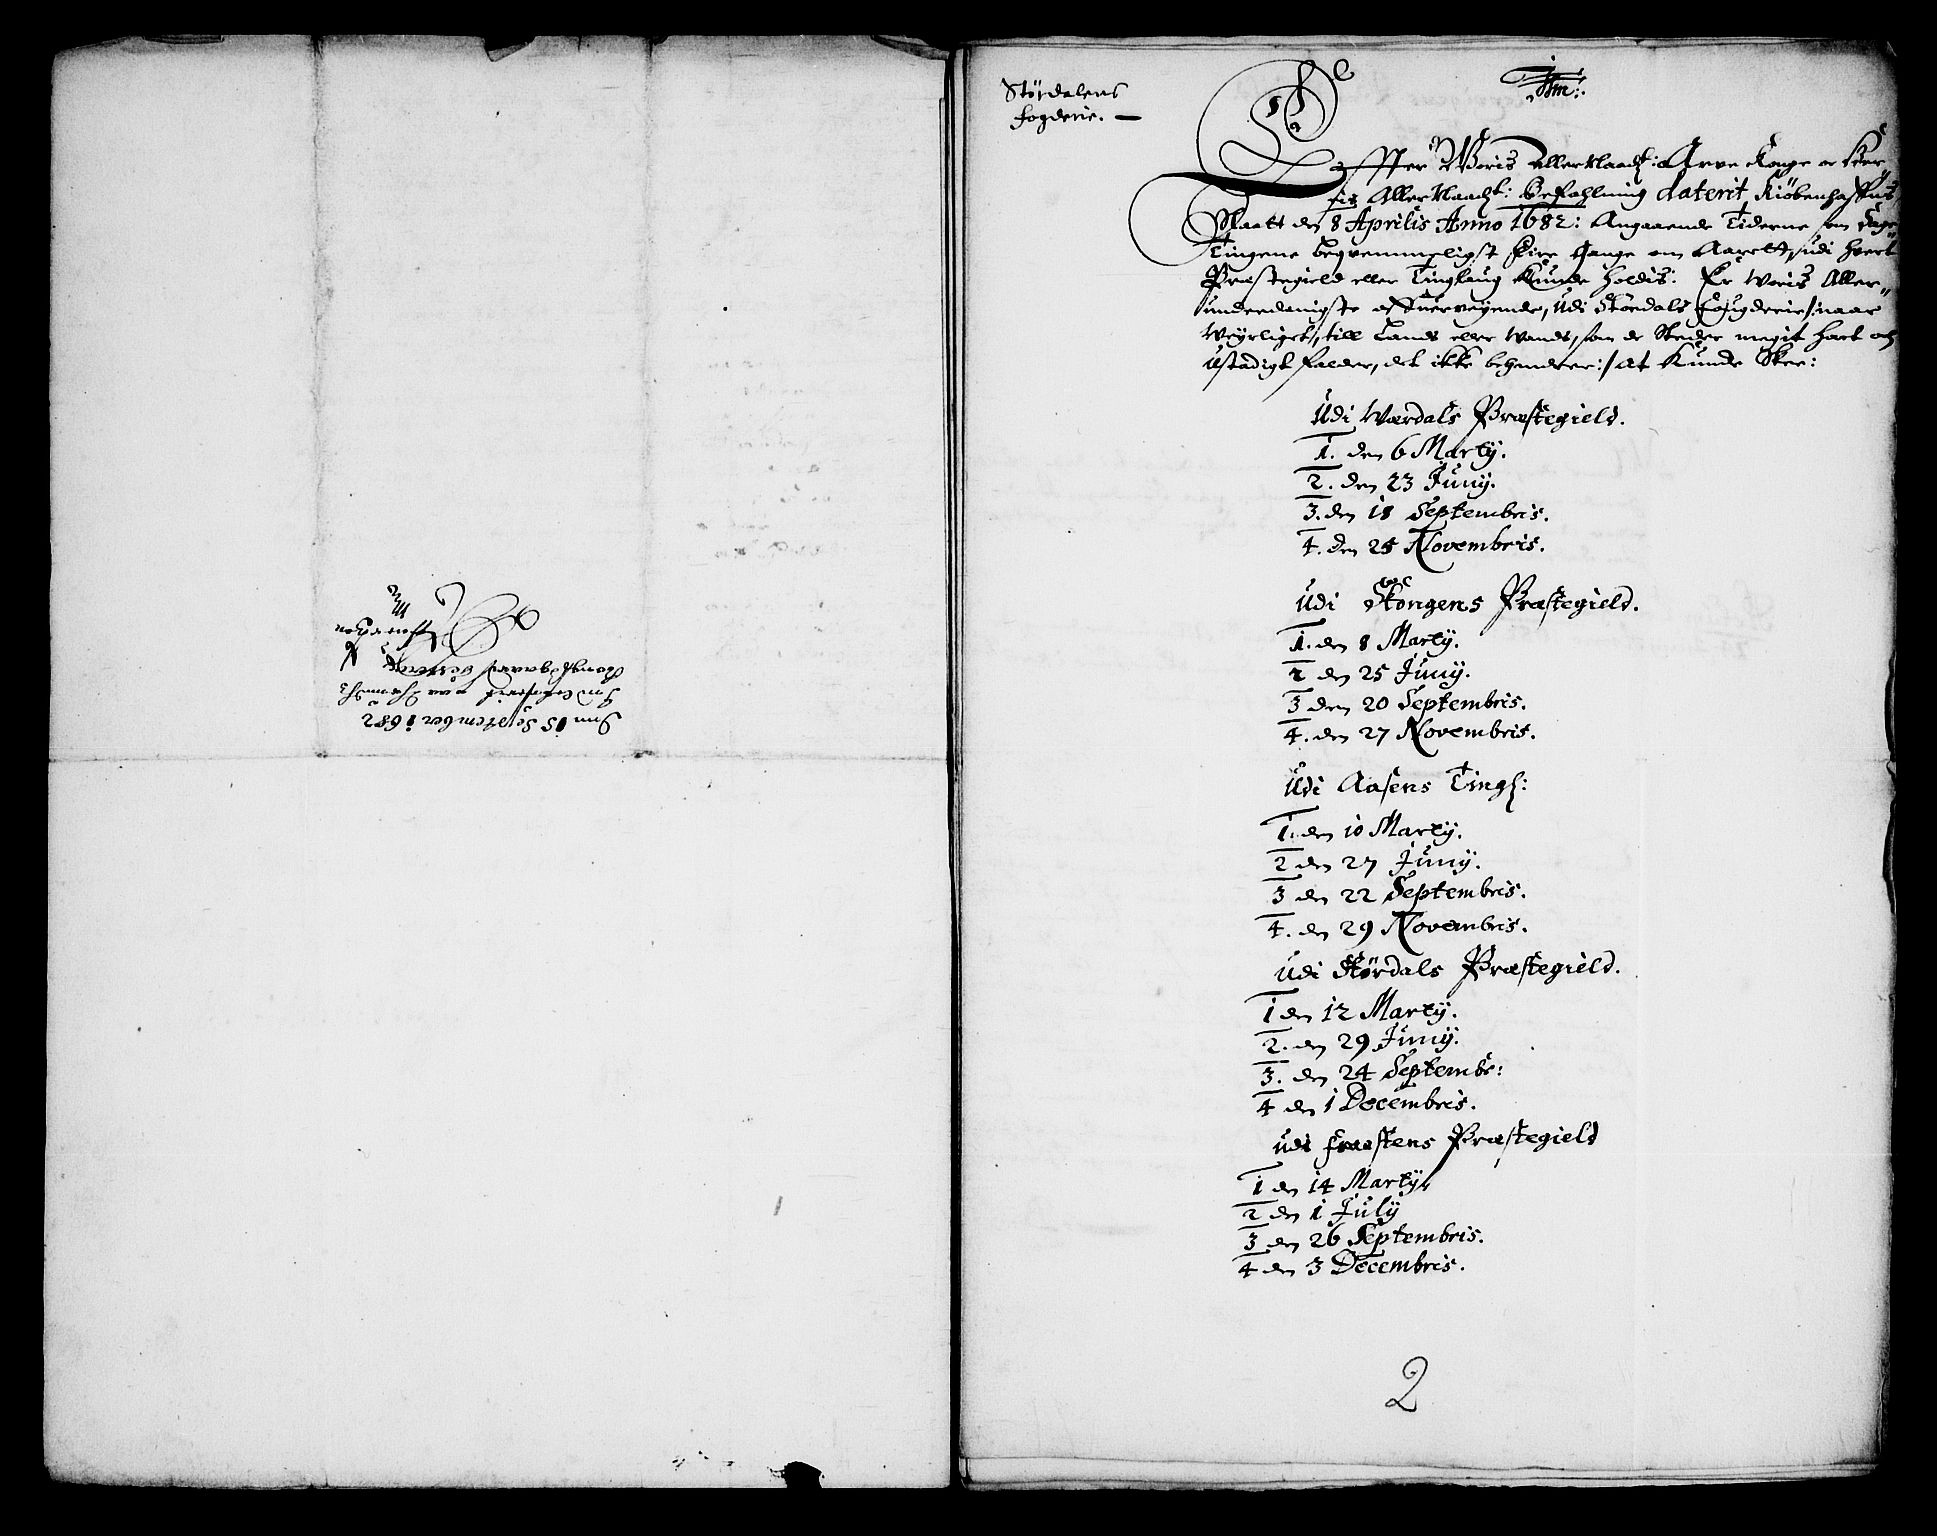 Stördalens
fogderie.
Effter Woris Allernaadst: Arve Konge er Herr
ris Allernaadst: Befahlning daterit Kiöbenhaffns
Slaatt den 8 Aprilis Anno 1682: Angaaende Tiderne som Sage
Tingene beqvemmeligst fire gange om Aarett, udi hvert
Præstegield eller Tinglaug Kunde holdis: Er Woris Aller„
underdanigste offuerveyende, Udi Stördals Fougderie /: naar
Weyrliget, till Lands eller Wands, som de Steder megit hart och
Ustadigt falder, det ikke behendrer :/ at Kunde Skee:
Udi Wærdals Præstegield.
1. den 6 Marty.
2. den 23 Juny.
3. den 18 Septembris.
4. den 25 Novembris.
Udi Skongens Præstegield.
1. den 8 Marty.
2 den 25 Juny.
3 den 20 Septembris.
4. den 27 Novembris.
Udi Aasens Tingl:
1. den 10 Marty.
2 den 27 Juny.
3 den 22 Septembris.
4. den 29 Novembris.
Udi Stördals Præstegield.
1 den 12 Marty.
2. den 29 Juny.
3. den 24 Septembr:
4 den 1 Decembris.
udi fraastens Præstegield
1 den 14 Marty,
2 den 1 July
3 den 26 Septembris.
4 den 3 Decembris.
2
15 September 1682